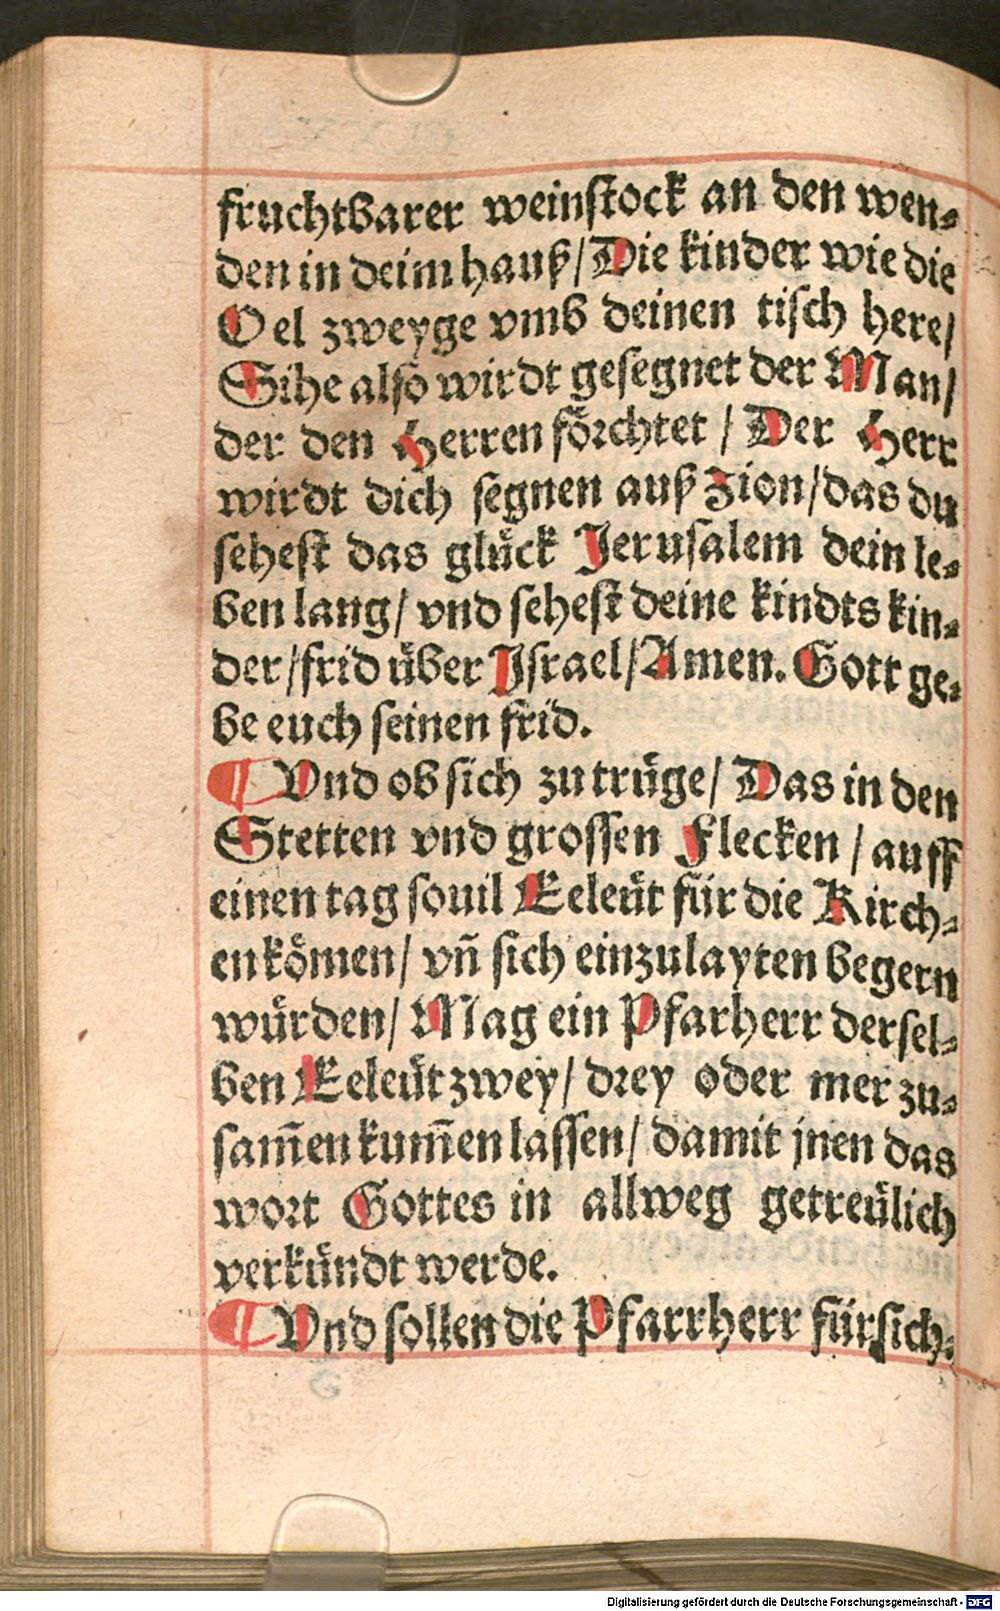 fruchtbarer weinſtock an den wen⸗
den in deim hauß/ Die kinder wie die
Oel zweyge vmb deinen tiſch here/
Sihe alſo wirdt geſegnet der Man/
der den Herren foͤꝛchtet / Der Herr
wirdt dich ſegnen auß Zion/ das du
ſeheſt das gluͤck Jeruſalem dein le⸗
ben lang/ vnd ſeheſt deine kindts kin⸗
der/ frid uͤber Jſrael/ Amen. Gott ge⸗
be euch ſeinen frid.
¶ Vnd ob ſich zu truͤge/ Das in den
Stetten vnd groſſen Flecken / auff
einen tag ſouil Eeleuͤt fuͤr die Kirch⸗
en koͤmen/ vñ ſich einzulayten begern
wuͤrden/ Mag ein Pfarherr derſel⸗
ben Eeleuͤt zwey/ dꝛey oder mer zu⸗
ſam̄en kum̄en laſſen/ damit jnen das
woꝛt Gottes in allweg getreuͤlich
verkuͤndt werde.
¶ Vnd ſollen die Pfarrherr fuͤrſich⸗
Digitalisierung gefördert durch die Deutsche Forschungsgemeinschaft - DFG